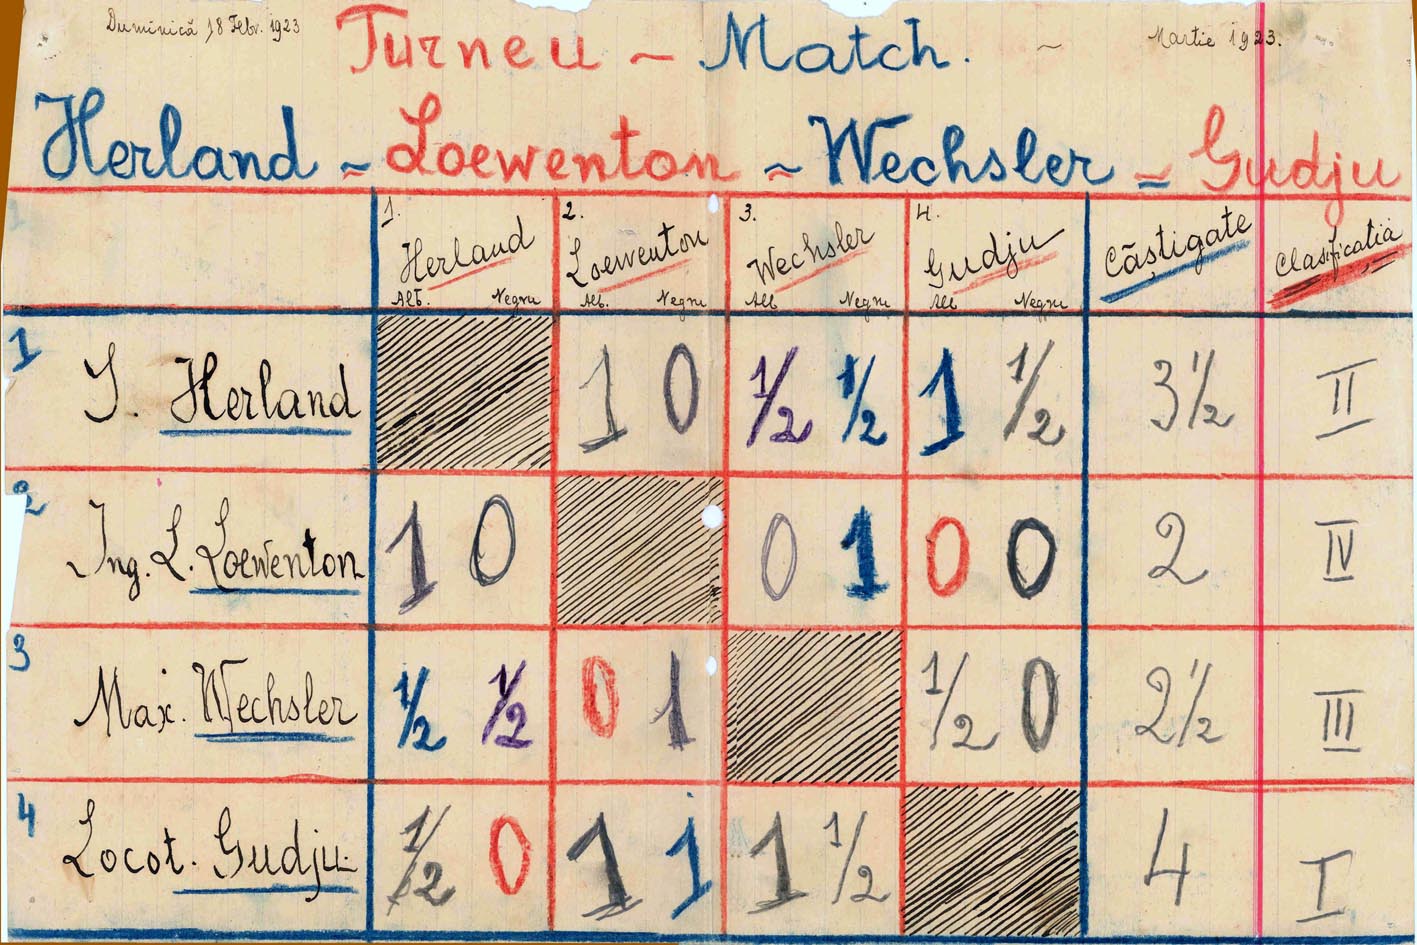 Duminică 18 Febr. 1923 Turneu ~ Match. ~ Martie 1923.
Herland ~ Loewenton ~ Wechsler = Gudju
1. Herland 2. Loewenton 3. Wechsler 4. Gudju Câștigate Clasificația
Alb. Negru Alb. Negru Alb Negru Alb Negru
1 S. Herland 1 0 ½ ½ 1 ½ 3½ II
2 Ing. L. Loewenton 1 0 0 1 0 0 2 IV
3 Max. Wechsler ½ ½ 0 1 ½ 0 2½ III
4 Locot. Gudju ½ 0 1 1 1 ½ 4 I